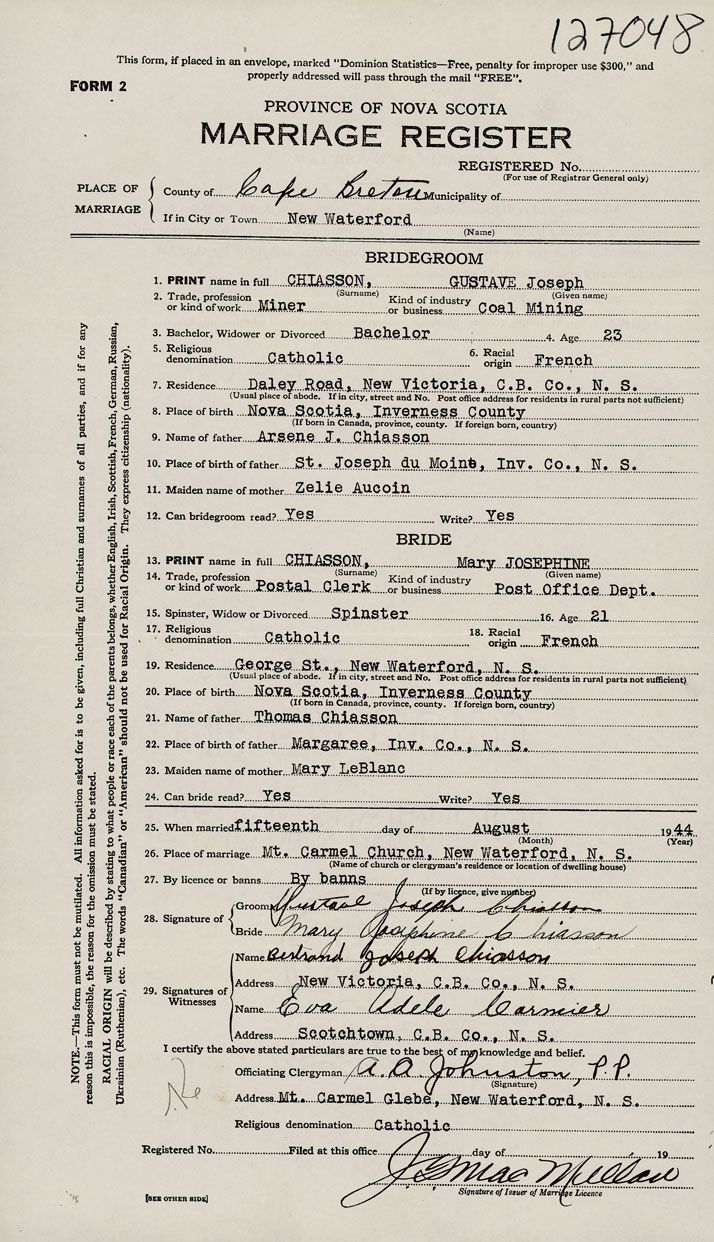 127048
This form, if placed in an envelope, marked "Dominion Statistics—Free, penalty for improper use $300," and
properly addressed will pass through the mail "FREE".
FORM 2
PROVINCE OF NOVA SCOTIA
MARRIAGE REGISTER
REGISTERED No.
(For use of Registrar General only)
PLACE OF MARRIAGE
County of Cape Breton Municipality of
If in City or Town New Waterford
(Name)
BRIDEGROOM
1. PRINT name in full CHIASSON, GUSTAVE Joseph
(Surname) (Given name)
2. Trade, profession or kind of work Miner Kind of industry or business Coal Mining
3. Bachelor, Widower or Divorced Bachelor 4. Age 23
5. Religious denomination Catholic 6. Racial origin French
7. Residence Daley Road, New Victoria, C.B. Co., N. S.
(Usual place of abode. If in city, street and No. Post office address for residents in rural parts not sufficient)
8. Place of birth Nova Scotia, Inverness County
(If born in Canada, province, county. If foreign born, country)
9. Name of father Arsene J. Chiasson
10. Place of birth of father St. Joseph du Moine, Inv. Co., N. S.
11. Maiden name of mother Zelie Aucoin
12. Can bridegroom read? Yes Write? Yes
BRIDE
13. PRINT name in full CHIASSON, Mary JOSEPHINE
(Surname) (Given name)
14. Trade, profession or kind of work Postal Clerk Kind of industry or business Post Office Dept.
15. Spinster, Widow or Divorced Spinster 16. Age 21
17. Religious denomination Catholic 18. Racial origin French
19. Residence George St., New Waterford, N. S.
(Usual place of abode. If in city, street and No. Post office address for residents in rural parts not sufficient)
20. Place of birth Nova Scotia, Inverness County
(If born in Canada, province, county. If foreign born, country)
21. Name of father Thomas Chiasson
22. Place of birth of father Margaree, Inv. Co., N. S.
23. Maiden name of mother Mary LeBlanc
24. Can bride read? Yes Write? Yes
25. When married fifteenth day of August 1944
(Month) (Year)
26. Place of marriage Mt. Carmel Church, New Waterford, N. S.
(Name of church or clergyman's residence or location of dwelling house)
27. By licence or banns By banns
(If by licence, give number)
28. Signature of
Groom Gustave Joseph Chiasson
Bride Mary Josephine Chiasson
29. Signatures of Witnesses
Name Bertrand Joseph Chiasson
Address New Victoria, C.B. Co., N. S.
Name Eva Adele Cormier
Address Scotchtown, C.B. Co., N. S.
I certify the above stated particulars are true to the best of my knowledge and belief.
Officiating Clergyman A. A. Johnston, P.P.
(Signature)
Address Mt. Carmel Glebe, New Waterford, N. S.
Religious denomination Catholic
Registered No. Filed at this office day of 19
J. G. MacMillan
Signature of Issuer of Marriage Licence
[SEE OTHER SIDE]
NOTE.—This form must not be mutilated. All information asked for is to be given, including full Christian and surnames of all parties, and if for any
reason this is impossible, the reason for the omission must be stated.
RACIAL ORIGIN will be described by stating to what people or race each of the parents belongs, whether English, Irish, Scottish, French, German, Russian,
Ukrainian (Ruthenian), etc. The words "Canadian" or "American" should not be used for Racial Origin. They express citizenship (nationality).